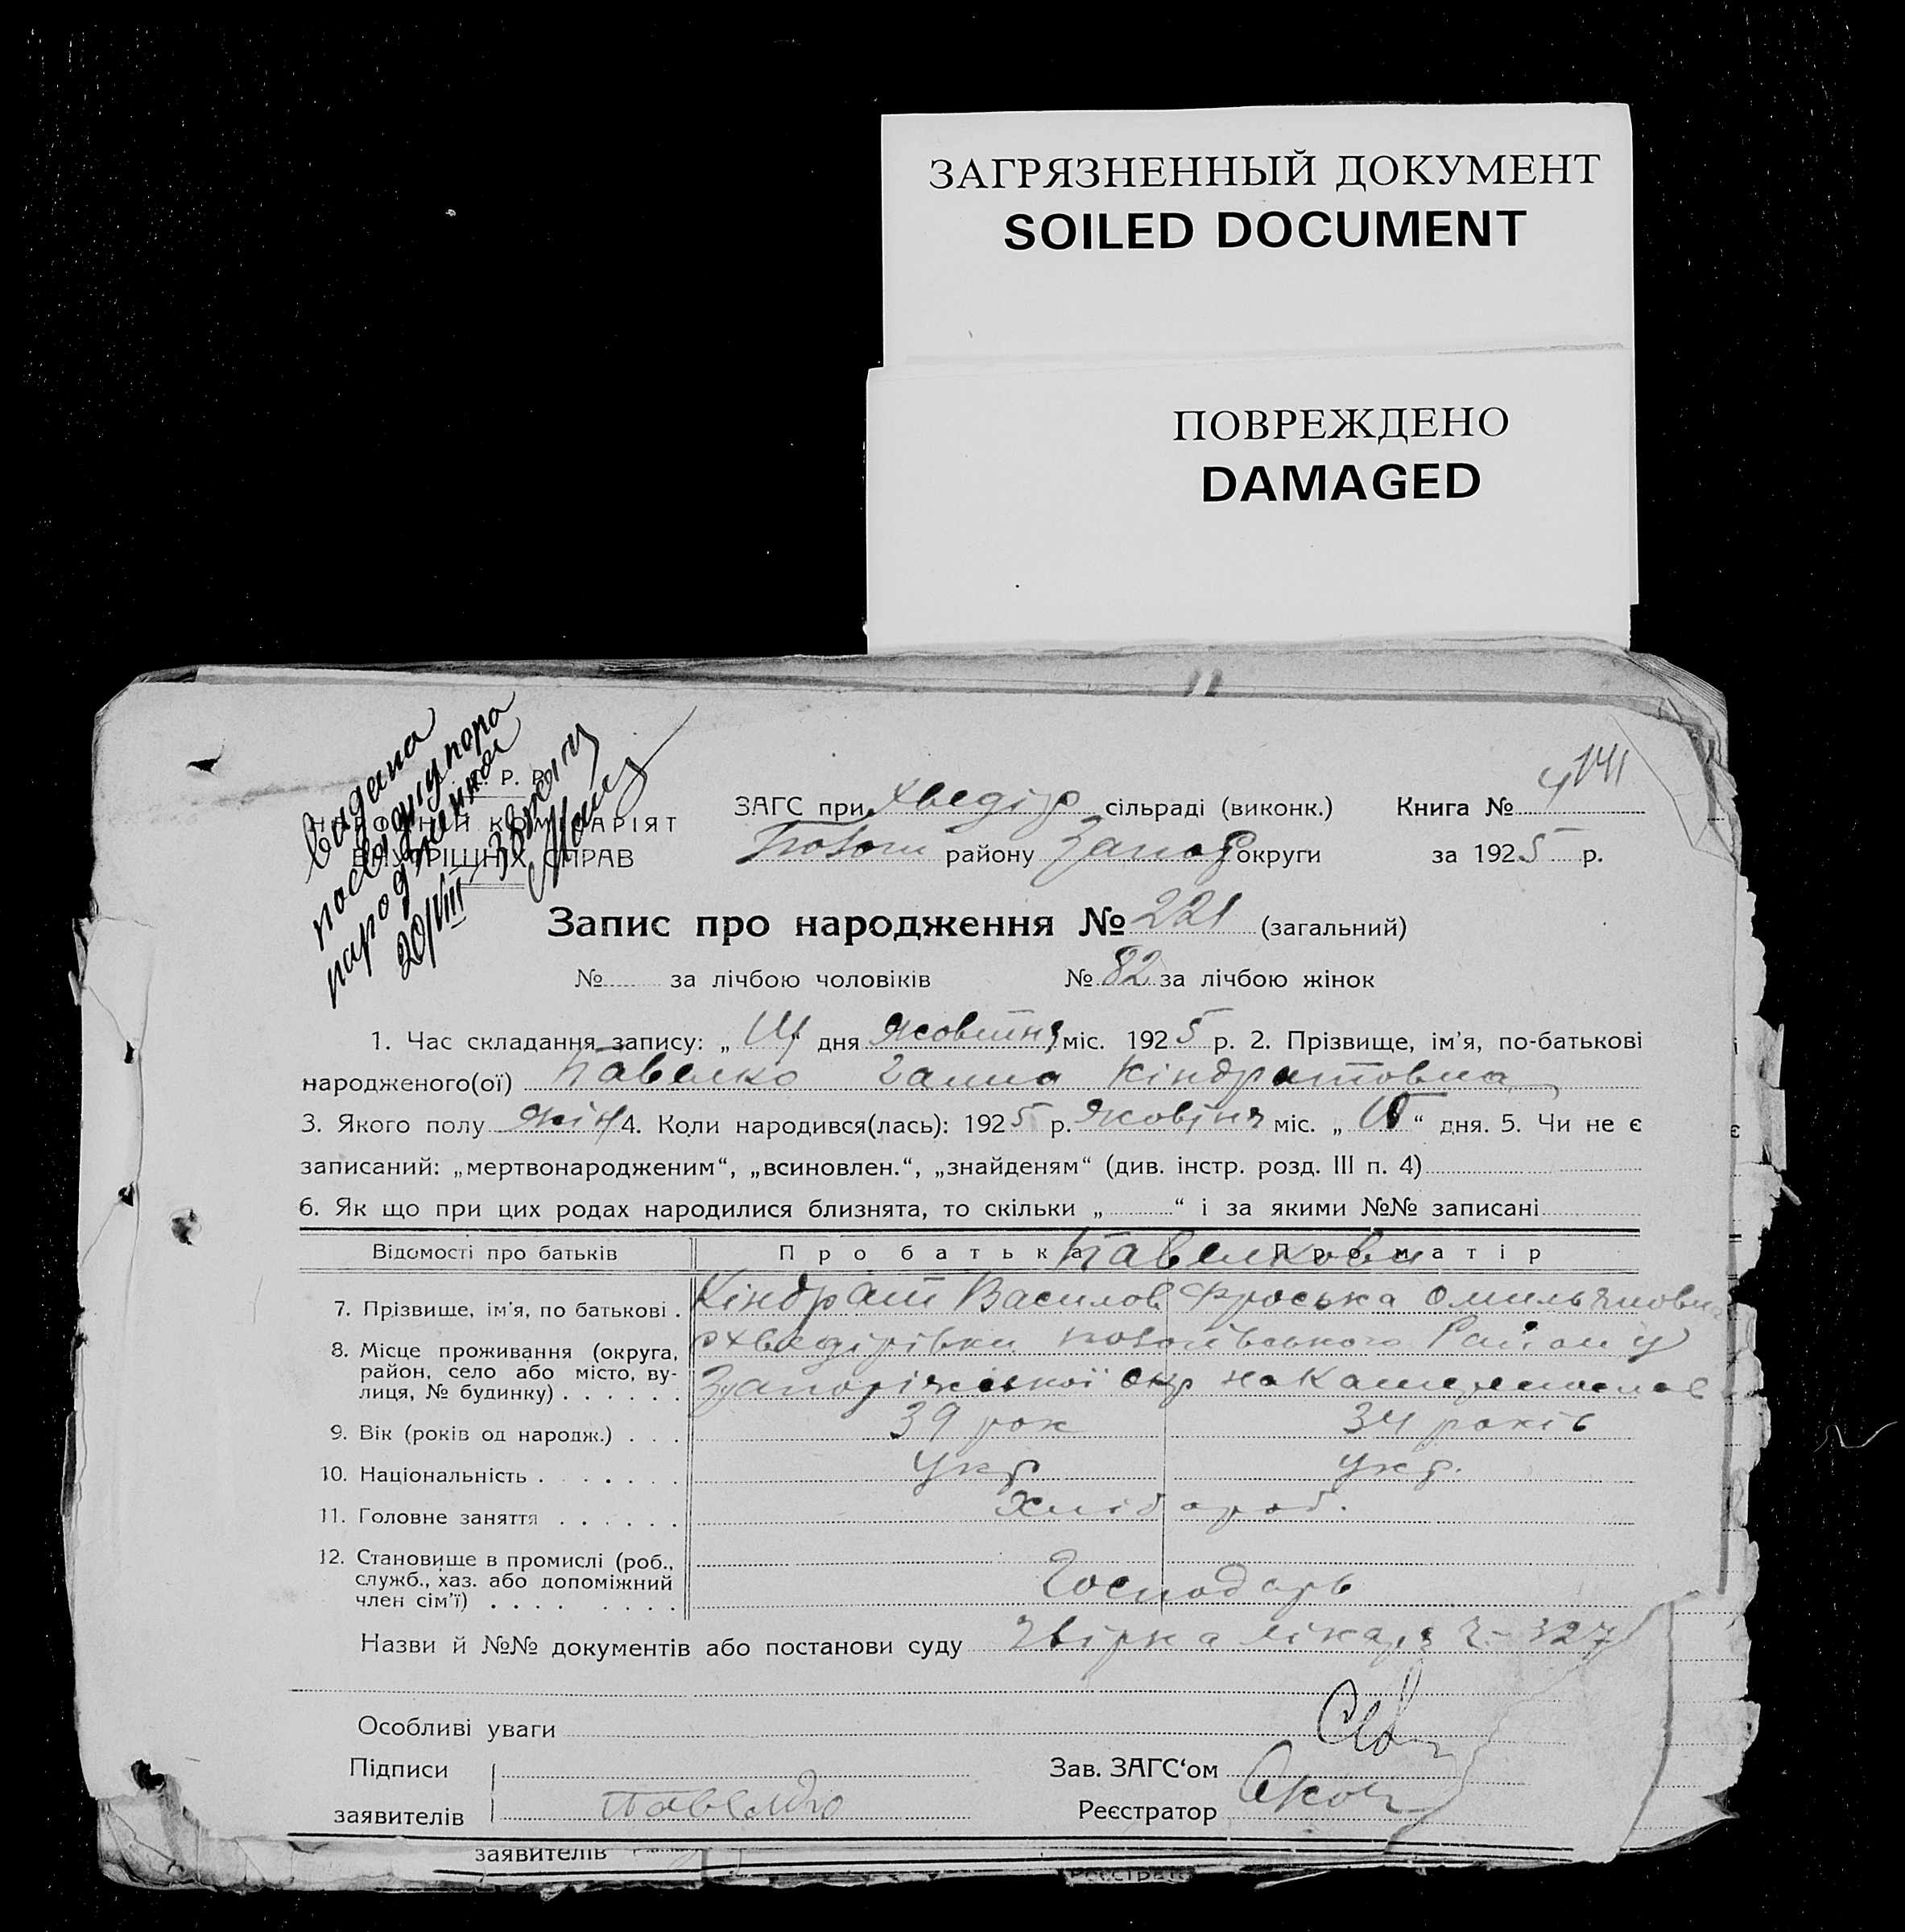 ЗАГРЯЗНЕННЫЙ ДОКУМЕНТ
SOILED DOCUMENT
ПОВРЕЖДЕНО
DAMAGED
141
Видана
народження
20/VIII
Р. Р.
НАРОДНІЙ КОМІСАРІЯТ
ВНУТРІШНІХ СПРАВ
ЗАГС при Хведір сільраді (виконк.) Книга № 4
району Запор округи за 1925 р.
Запис про народження № 221 (загальний)
№ за лічбою чоловіків № 82 за лічбою жінок
1. Час складання запису: „ дня Жовтня міс. 1925 р. 2. Прізвище, ім'я, по-батькові
народженого(ої) Павелко Ганна Кіндратовна
3. Якого полу жін 4. Коли народився(лась): 1925 р. Жовтня міс. „ “ дня. 5. Чи не є
записаний: „мертвонародженим“, „всиновлен.“, „знайденям“ (див. інстр. розд. III п. 4)
6. Як що при цих родах народилися близнята, то скільки „ “ і за якими №№ записані
Відомості про батьків Про батька Про матір
Павелкови
7. Прізвище, ім'я, по батькові . Кіндрат Василов Фроська Омильяновна
8. Місце проживання (округа, район, село або місто, ву-лиця, № будинку) . . . . . .
Хведірівки Району
Запоріжської окр
9. Вік (років од народж.) . . . 39 рок 34 років
10. Національність . . . . . . Укр Укр.
11. Головне заняття . . . . . . Хлібороб.
12. Становище в промислі (роб., служб., хаз. або допоміжний член сім'ї) . . . . . . . . Господарь
Назви й №№ документів або постанови суду 327
Особливі уваги
Підписи
Зав. ЗАГС‘ом
заявителів Павелко Реєстратор
заявителів
Реєстратор